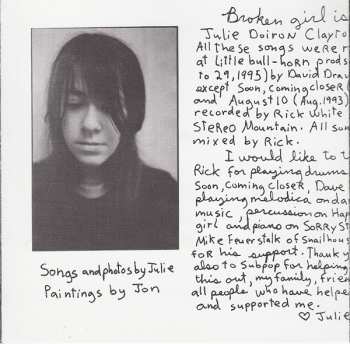 Broken girl is
Julie Doiron Clayto
All these songs were r
at Little bull-horn prods
to 29, 1995) by David Dra
except Soon, coming closer (
and August 10 (Aug. 1993)
recorded by Rick White
Stereo Mountain. All son
mixed by Rick.
I would like to t
Rick for playing drums
Soon, coming closer, Dave
playing melodica on da
music, percussion on Hap
girl and piano on Sorry St
Mike Feuerstalk of Snailhous
for his support. Thank y
also to Subpop for helping
this out, my family, frien
all people who have helpe
and supported me.
♡ Julie
Songs and photos by Julie
Paintings by Jon